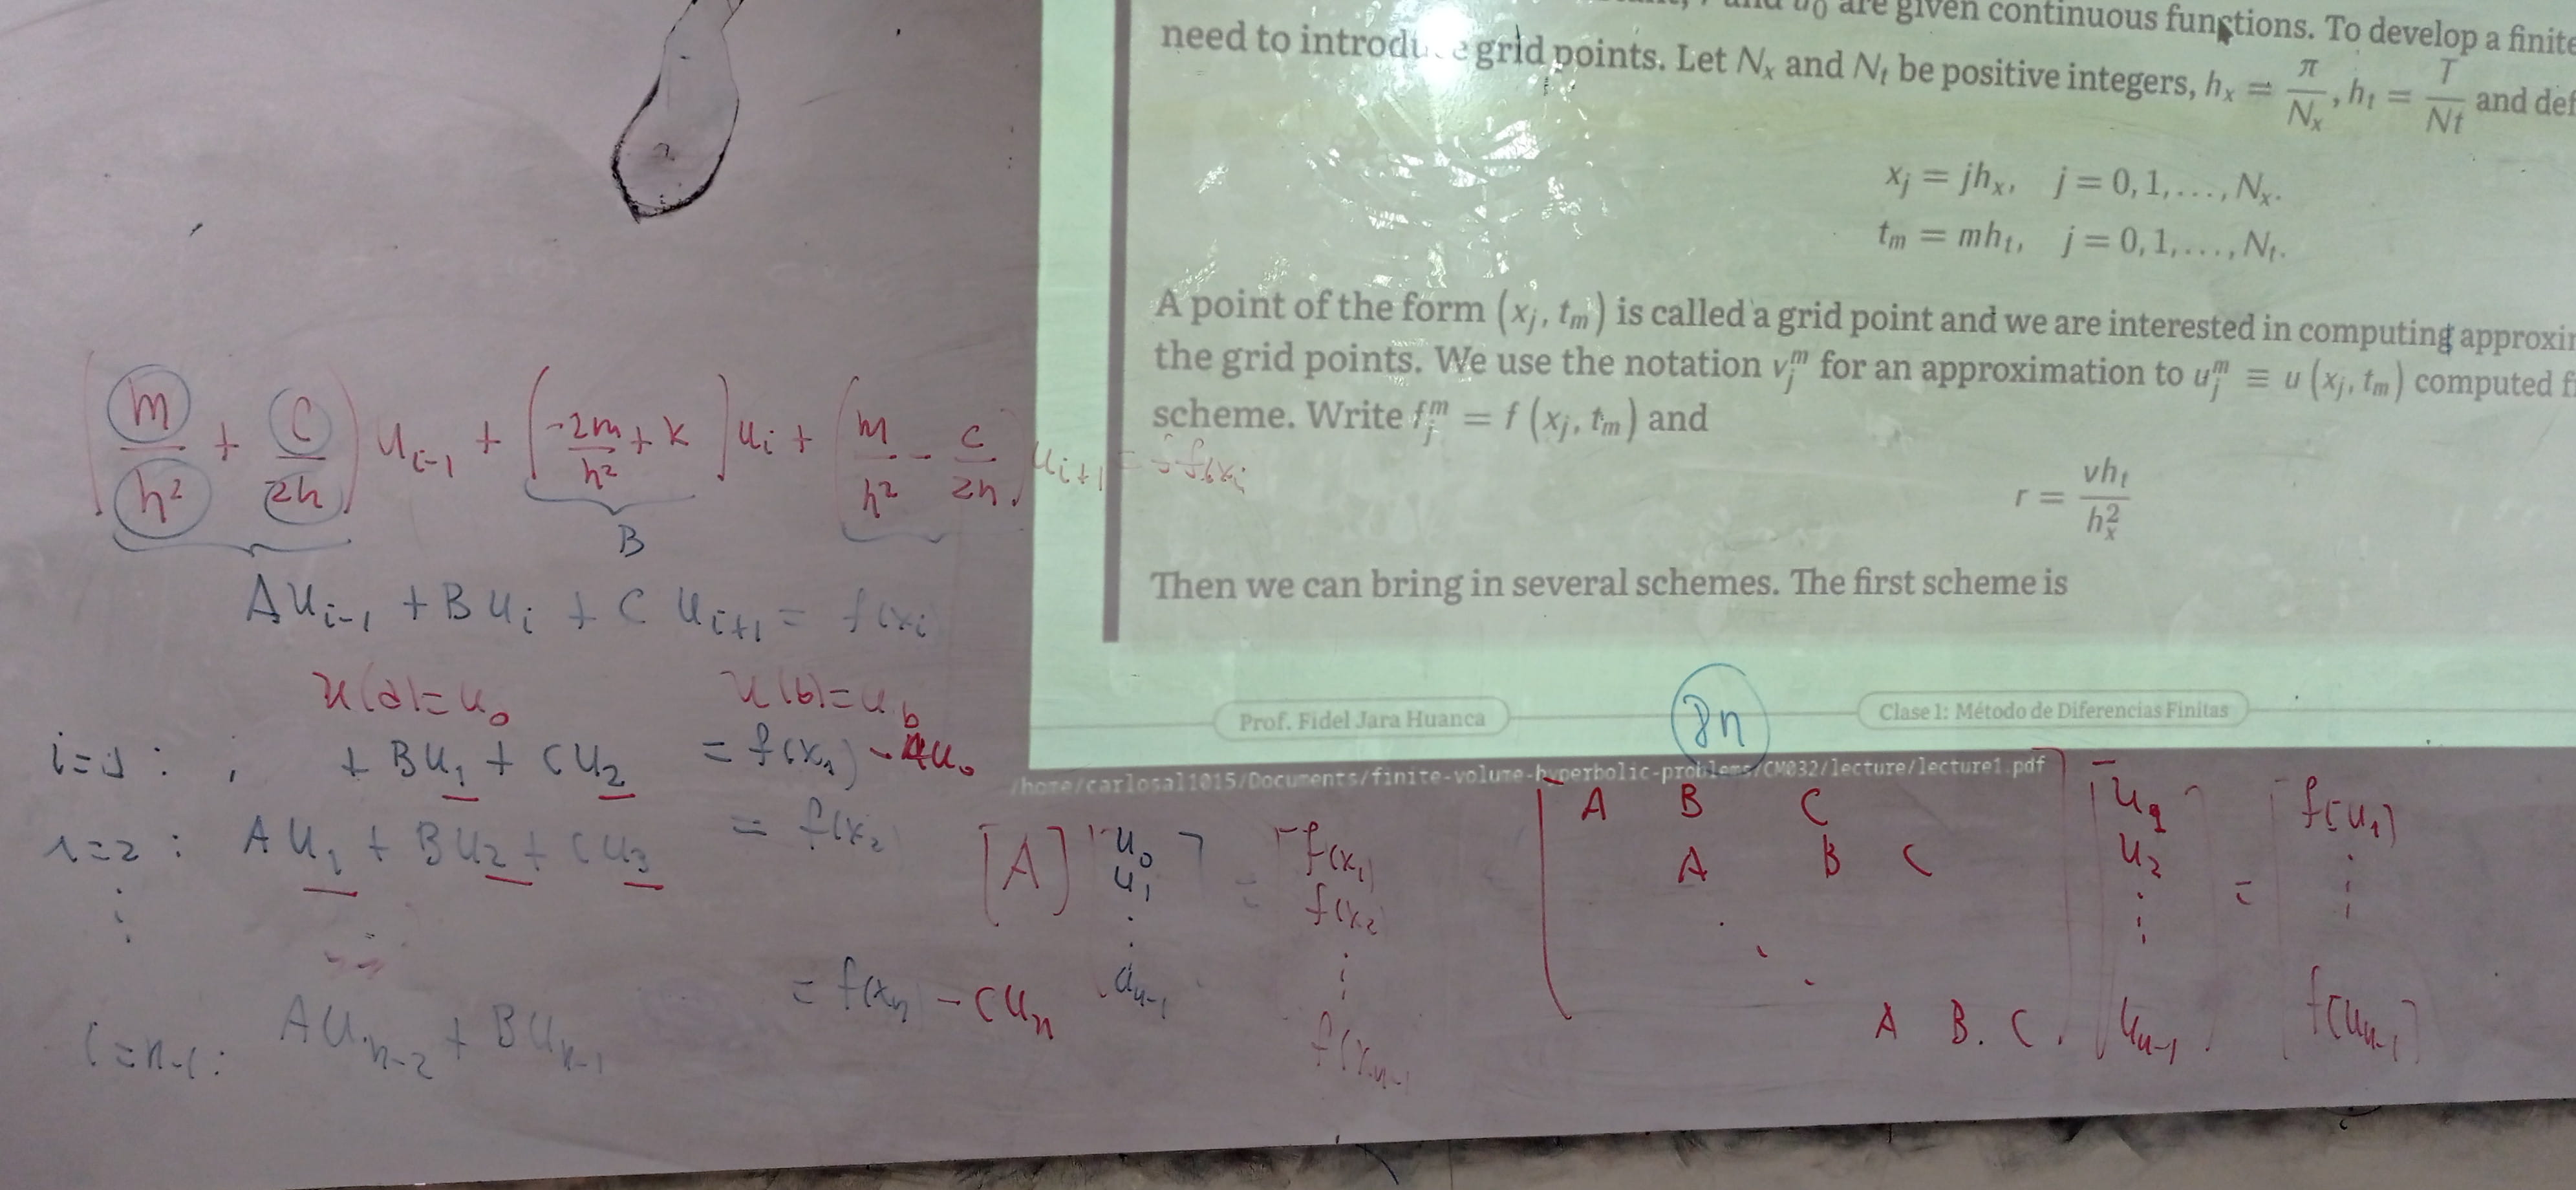 are given continuous functions. To develop a finite
need to introduce grid points. Let Nₓ and Nₜ be positive integers, hₓ = π/Nₓ, hₜ = T/Nt and def
xⱼ = jhₓ, j = 0, 1, . . . , Nₓ.
tₘ = mhₜ, j = 0, 1, . . . , Nₜ.
A point of the form (xⱼ, tₘ) is called a grid point and we are interested in computing approxi
the grid points. We use the notation vⱼᵐ for an approximation to uⱼᵐ ≡ u (xⱼ, tₘ) computed f
scheme. Write fⱼᵐ = f (xⱼ, tₘ) and
r = vhₜ/hₓ²
Then we can bring in several schemes. The first scheme is
Prof. Fidel Jara Huanca
Clase 1: Método de Diferencias Finitas
/home/carlosal1015/Documents/finite-volume-hyperbolic-problems/CM032/lecture/lecture1.pdf
(m/h² + c/2h) u_{i-1} + [-2m/h² + k] u_i + (m/h² - c/2h) u_{i+1} = f(x_i
B
A u_{i-1} + B u_i + C u_{i+1} = f(x_i
u(a)=u₀ u(b)=u_b
i=1 : + Bu₁ + Cu₂ = f(x₁) - Au₀
i=2 : Au₁ + Bu₂ + Cu₃ = f(x₂
i=n-1 : Au_{n-2} + Bu_{n-1} = f(x_n - Cu_n
[A] [u₀ u₁ ⋮ u_{n-1}] = [f(x₁) f(x₂) ⋮ f(x_{n-1}
A B C u₁ f(u₁)
A B C u₂ =
A B. C. u_{n-1} f(u_{n-1})